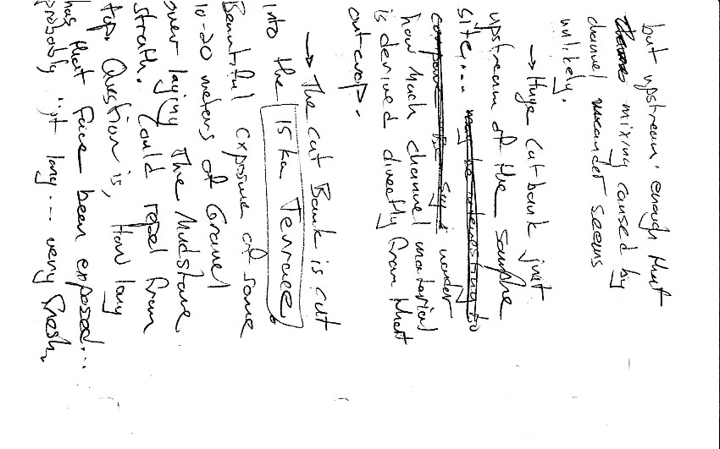 but upstream. enough that
mixing caused by
channel meander seems
unlikely.
→ Huge cutbank just
upstream of the sample
site... may be interesting to
compare the say i wonder
how much channel material
is derived directly from that
outcrop.
→ The cut Bank is cut
into the 15ka Terrace
Beautiful exposure of some
10-20 meters of Gravel
over laying The Mudstone
strath. Could repel from
top. Question is, How long
has that face been exposed...
probably not long... very fresh.